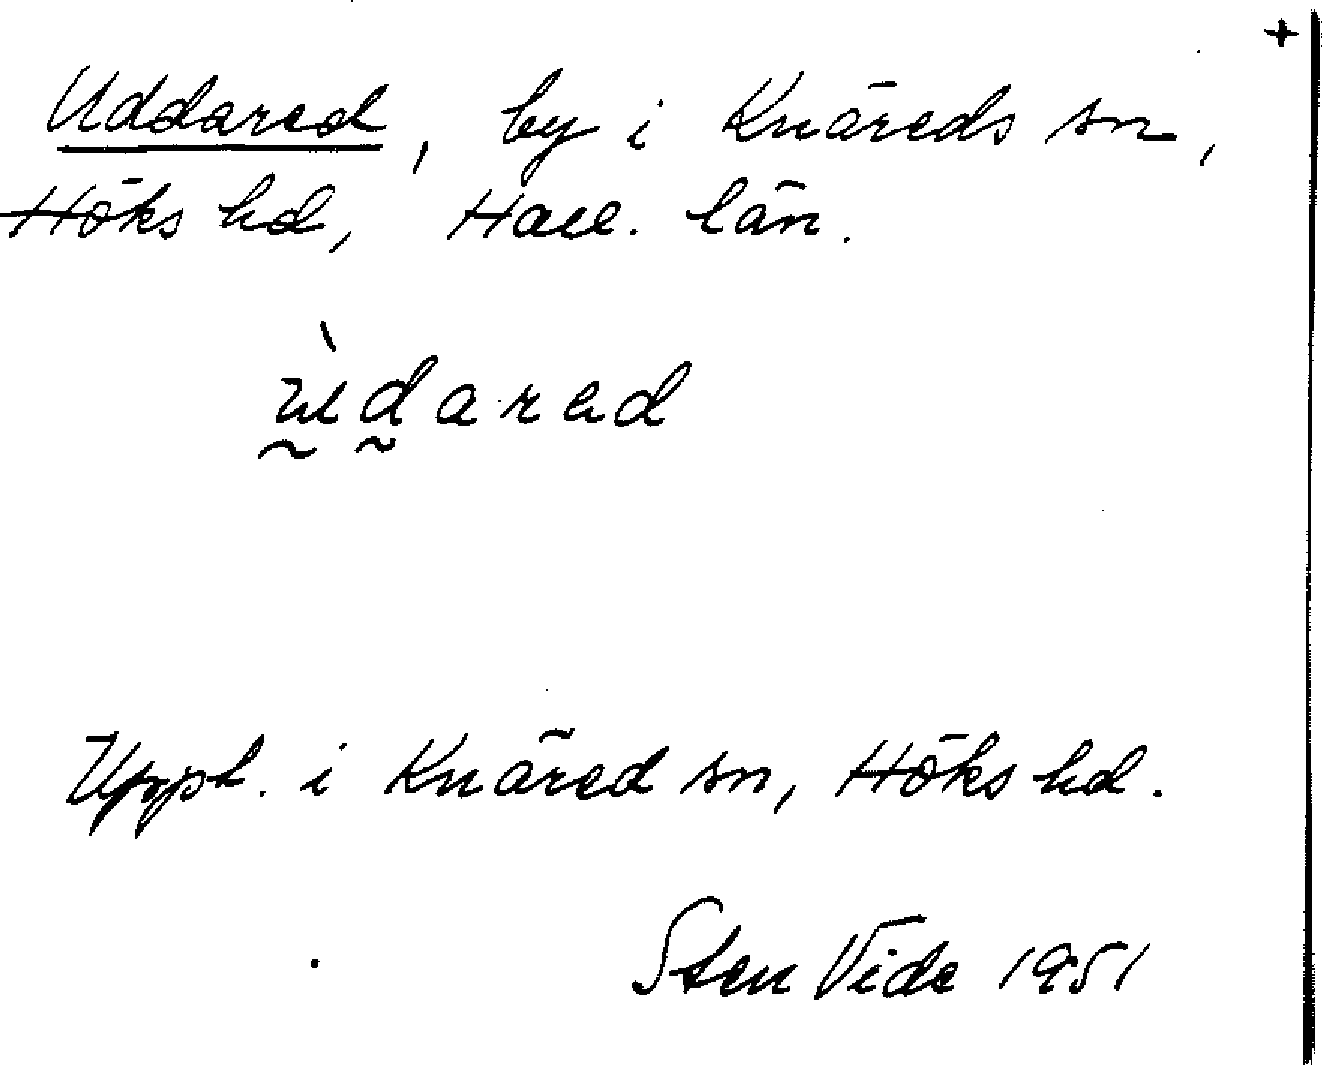 +
Uddared, by i Knäreds sn,
Höks hd, Hall. län.
ùdared
Uppt. i Knäred sn, Höks hd.
Sten Vide 1951